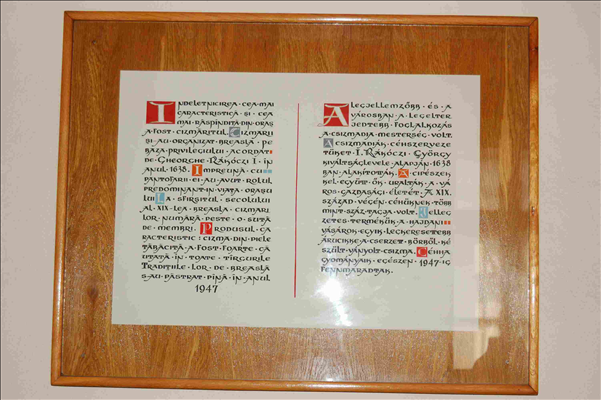 INDELETNICIREA · CEA MAI
CARACTERISTICĂ · ȘI · CEA
MAI · RĂSPÎNDITĂ · DIN · ORAȘ
A · FOST · CIZMĂRITUL · CIZMARII
ȘI · AU · ORGANIZAT · BREASLA · PE
BAZA · PRIVILEGIULUI · ACORDAT
DE · GHEORGHE · RÁKÓCZI · I · IN
ANUL · 1638 · IMPREUNĂ · CU
PANTOFARII · EI · AU · AVUT · ROLUL
PREDOMINANT · IN · VIAȚA · ORAȘU
LUI · LA · SFIRȘITUL · SECOLULUI
AL · XIX · LEA · BREASLA · CIZMARI
LOR · NUMĂRĂ · PESTE · O · SUTĂ
DE · MEMBRI · PRODUSUL · CA
RACTERISTIC · CIZMA · DIN · PIELE
TĂBĂCITĂ · A · FOST · FOARTE · CĂ
UTATĂ · IN · TOATE · TÎRGURILE
TRADIȚIILE · LOR · DE · BREASLĂ
S-AU · PĂSTRAT · PÎNĂ · IN · ANUL
1947
A LEGJELLEMZŐBB · ÉS · A
VÁROSBAN · A · LEGELTER
JEDTEBB · FOGLALKOZÁS
A · CSIZMADIA · MESTERSÉG · VOLT ·
A CSIZMADIÁK · CÉHSZERVEZE
TÜKET · I · RÁKÓCZI · GYÖRGY
KIVÁLTSÁGLEVELE · ALAPJÁN · 1638
BAN · ALAKITOTTÁK · A · CIPÉSZEK
KEL · EGYÜTT · ŐK · URALTÁK · A · VÁ
ROS · GAZDASÁGI · ÉLETÉT · A XIX ·
SZÁZAD · VÉGÉN · CÉHÜKNEK · TÖBB
MINT · SZÁZ · TAGJA · VOLT · JELLEG
ZETES · TERMÉKÜK · A · HAJDANI
VÁSÁROK · EGYIK · LEGKERESETTEBB
ÁRUCIKKE · A · CSERZETT · BŐRBŐL · KÉ
SZÜLT · VÁNYOLT · CSIZMA · CÉHHA
GYOMÁNYAIK · EGÉSZEN · 1947 · IG
FENNMARADTAK ·